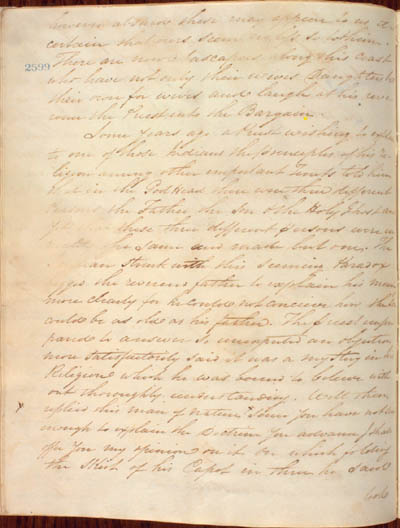 however absurd these may appear to us, it is
certain that ours seem as
2599
There are now Nascapees along this Coast
who have not only their wives Daughters but
their own for wives and laugh at his reve
rence the Priest into the Bargain.
Some Years ago a Priest wishing to
to one of those Indians the principles of his re
ligion among other important Truths told him
that in the God Head there were three different
Persons the Father, the Son & the Holy Ghost
these three different Persons were
the same and made but one. The
Indian Struck with this Seeming Paradox
the reverend father to explain his mean
more clearly for he could not conceive how the Son
could be as old as his father. The Priest unpre
pared to answer so unexpected an objection
more Satisfactorily said it was a mystery in his
Religion which he was bound to believe with
out thoroughly understanding. Well then
replies this man of nature Since You have not
enough to explain the Doctrine You advance I shall
give You my opinion on it on which folding
the Skirt of his Capot in three he said